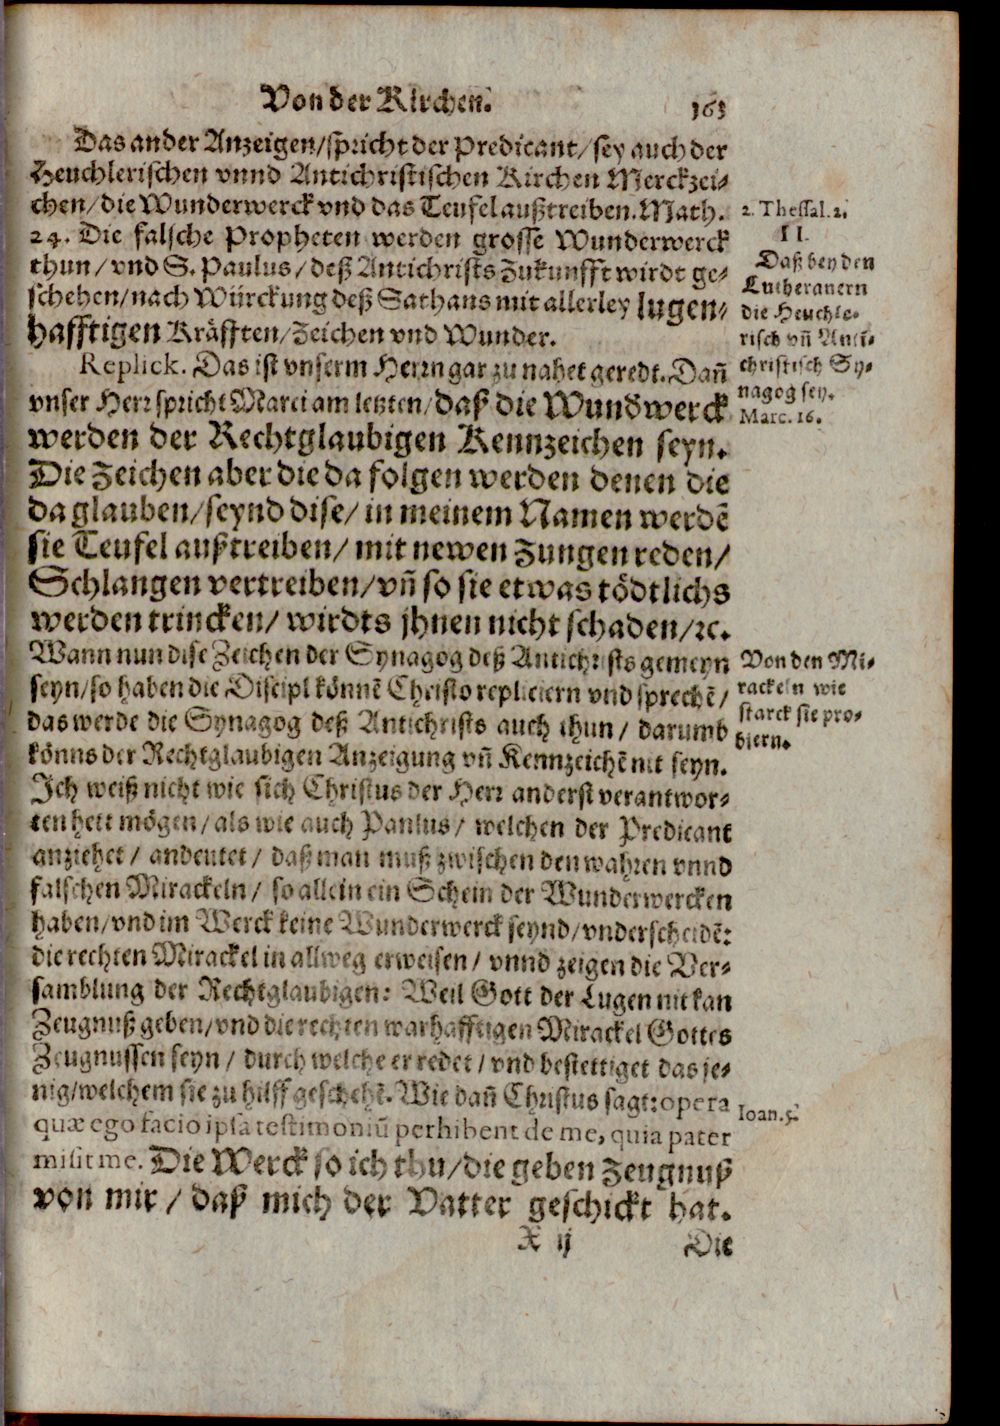 Von der Kirchen. 163
Das ander Anzeigen/spricht der Predicant/sey auch der
Heuchlerischen vnnd Antichristischen Kirchen Merckzei-
chen/die Wunderwerck vnd das Teufel außtreiben. Math.
24. Die falsche Propheten werden grosse Wunderwerck
thun/vnd S. Paulus/deß Antichrists Zukunfft wirdt ge-
schehen/nach Würckung deß Sathans mit allerley lugen-
hafftigen Kräfften/Zeichen vnd Wunder.
2. Thessal. 2.
II.
Daß bey den
Lutheranern
die Heuchle-
risch vñ Anti-
christisch Sy-
nagog sey.
Marc. 16.
Replick. Das ist vnserm Herrn gar zu nahet geredt. Dañ
vnser Herr spricht Marci am letzten/daß die Wunderwerck
werden der Rechtglaubigen Kennzeichen seyn.
Die Zeichen aber die da folgen werden denen die
da glauben/seynd dise/in meinem Namen werdẽ
sie Teufel außtreiben/mit newen Zungen reden/
Schlangen vertreiben/vñ so sie etwas tödtlichs
werden trincken/wirdts jhnen nicht schaden/ꝛc.
Wann nun dise Zeichen der Synagog deß Antichrists gemeyn
seyn/so haben die Discipl könnẽ Christo repliciern vnd sprechẽ/
das werde die Synagog deß Antichrists auch thun/darumb
könns der Rechtglaubigen Anzeigung vñ Kennzeichẽ nit seyn.
Ich weiß nicht wie sich Christus der Herr anderst verantwor-
ten hett mögen/als wie auch Paulus/welchen der Predicant
anziehet/andeutet/daß man muß zwischen den wahren vnnd
falschen Mirackeln/so allein ein Schein der Wunderwercken
haben/vnd im Werck keine Wunderwerck seynd/vnderscheidẽ:
die rechten Mirackel in allweg erweisen/vnnd zeigen die Ver-
samblung der Rechtglaubigen: Weil Gott der Lugen nit kan
Zeugnuß geben/vnd die rechten warhafftigen Mirackel Gottes
Zeugnussen seyn/durch welche er redet/vnd bestettiget das je-
nig/welchem sie zu hilff geschehẽ. Wie dañ Christus sagt: opera
quæ ego facio ipsa testimoniũ perhibent de me, quia pater
misit me. Die Werck so ich thu/die geben Zeugnuß
von mir/daß mich der Vatter geschickt hat.
Von den Mi-
rackeln wie
starck sie pro-
biern.
Ioan. 5.
X ij Die